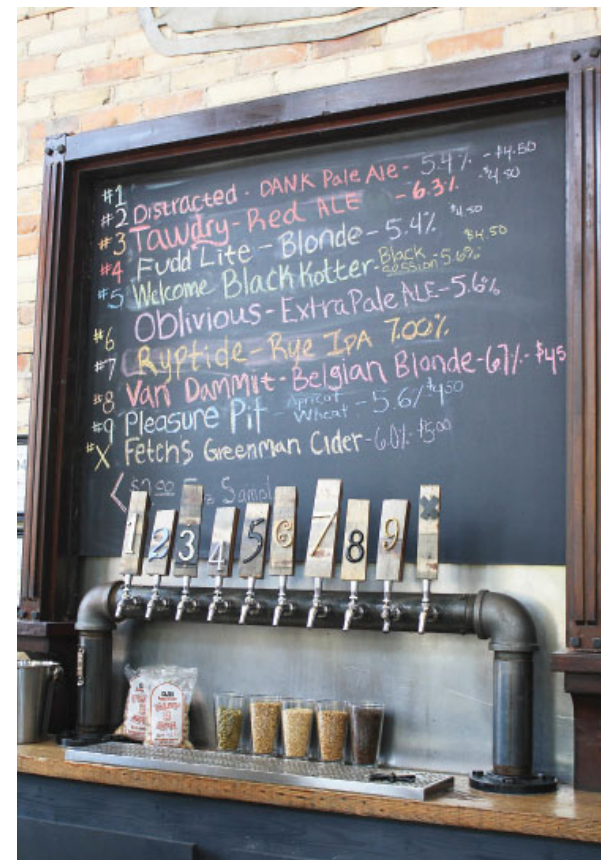 #1 Distracted - DANK Pale Ale - 5.4% - $4.50
#2 Tawdry - Red ALE - 6.3% - $4.50
#3 Fudd Lite - Blonde - 5.4% $4.50
#4 Welcome Black Kotter - Black Session - 5.6% $4.50
#5 Oblivious - Extra Pale ALE - 5.6%
#6 Ryptide - Rye IPA 7.00%
#7 Van Dammit - Belgian Blonde - 6.7% - $45
#8 Pleasure Pit - Apricot Wheat - 5.6% $4.50
#9 Fetchs Greenman Cider - 6.0% $5.00
#X
$2.00 5oz Sampl
1 2 3 4 5 6 7 8 9 X